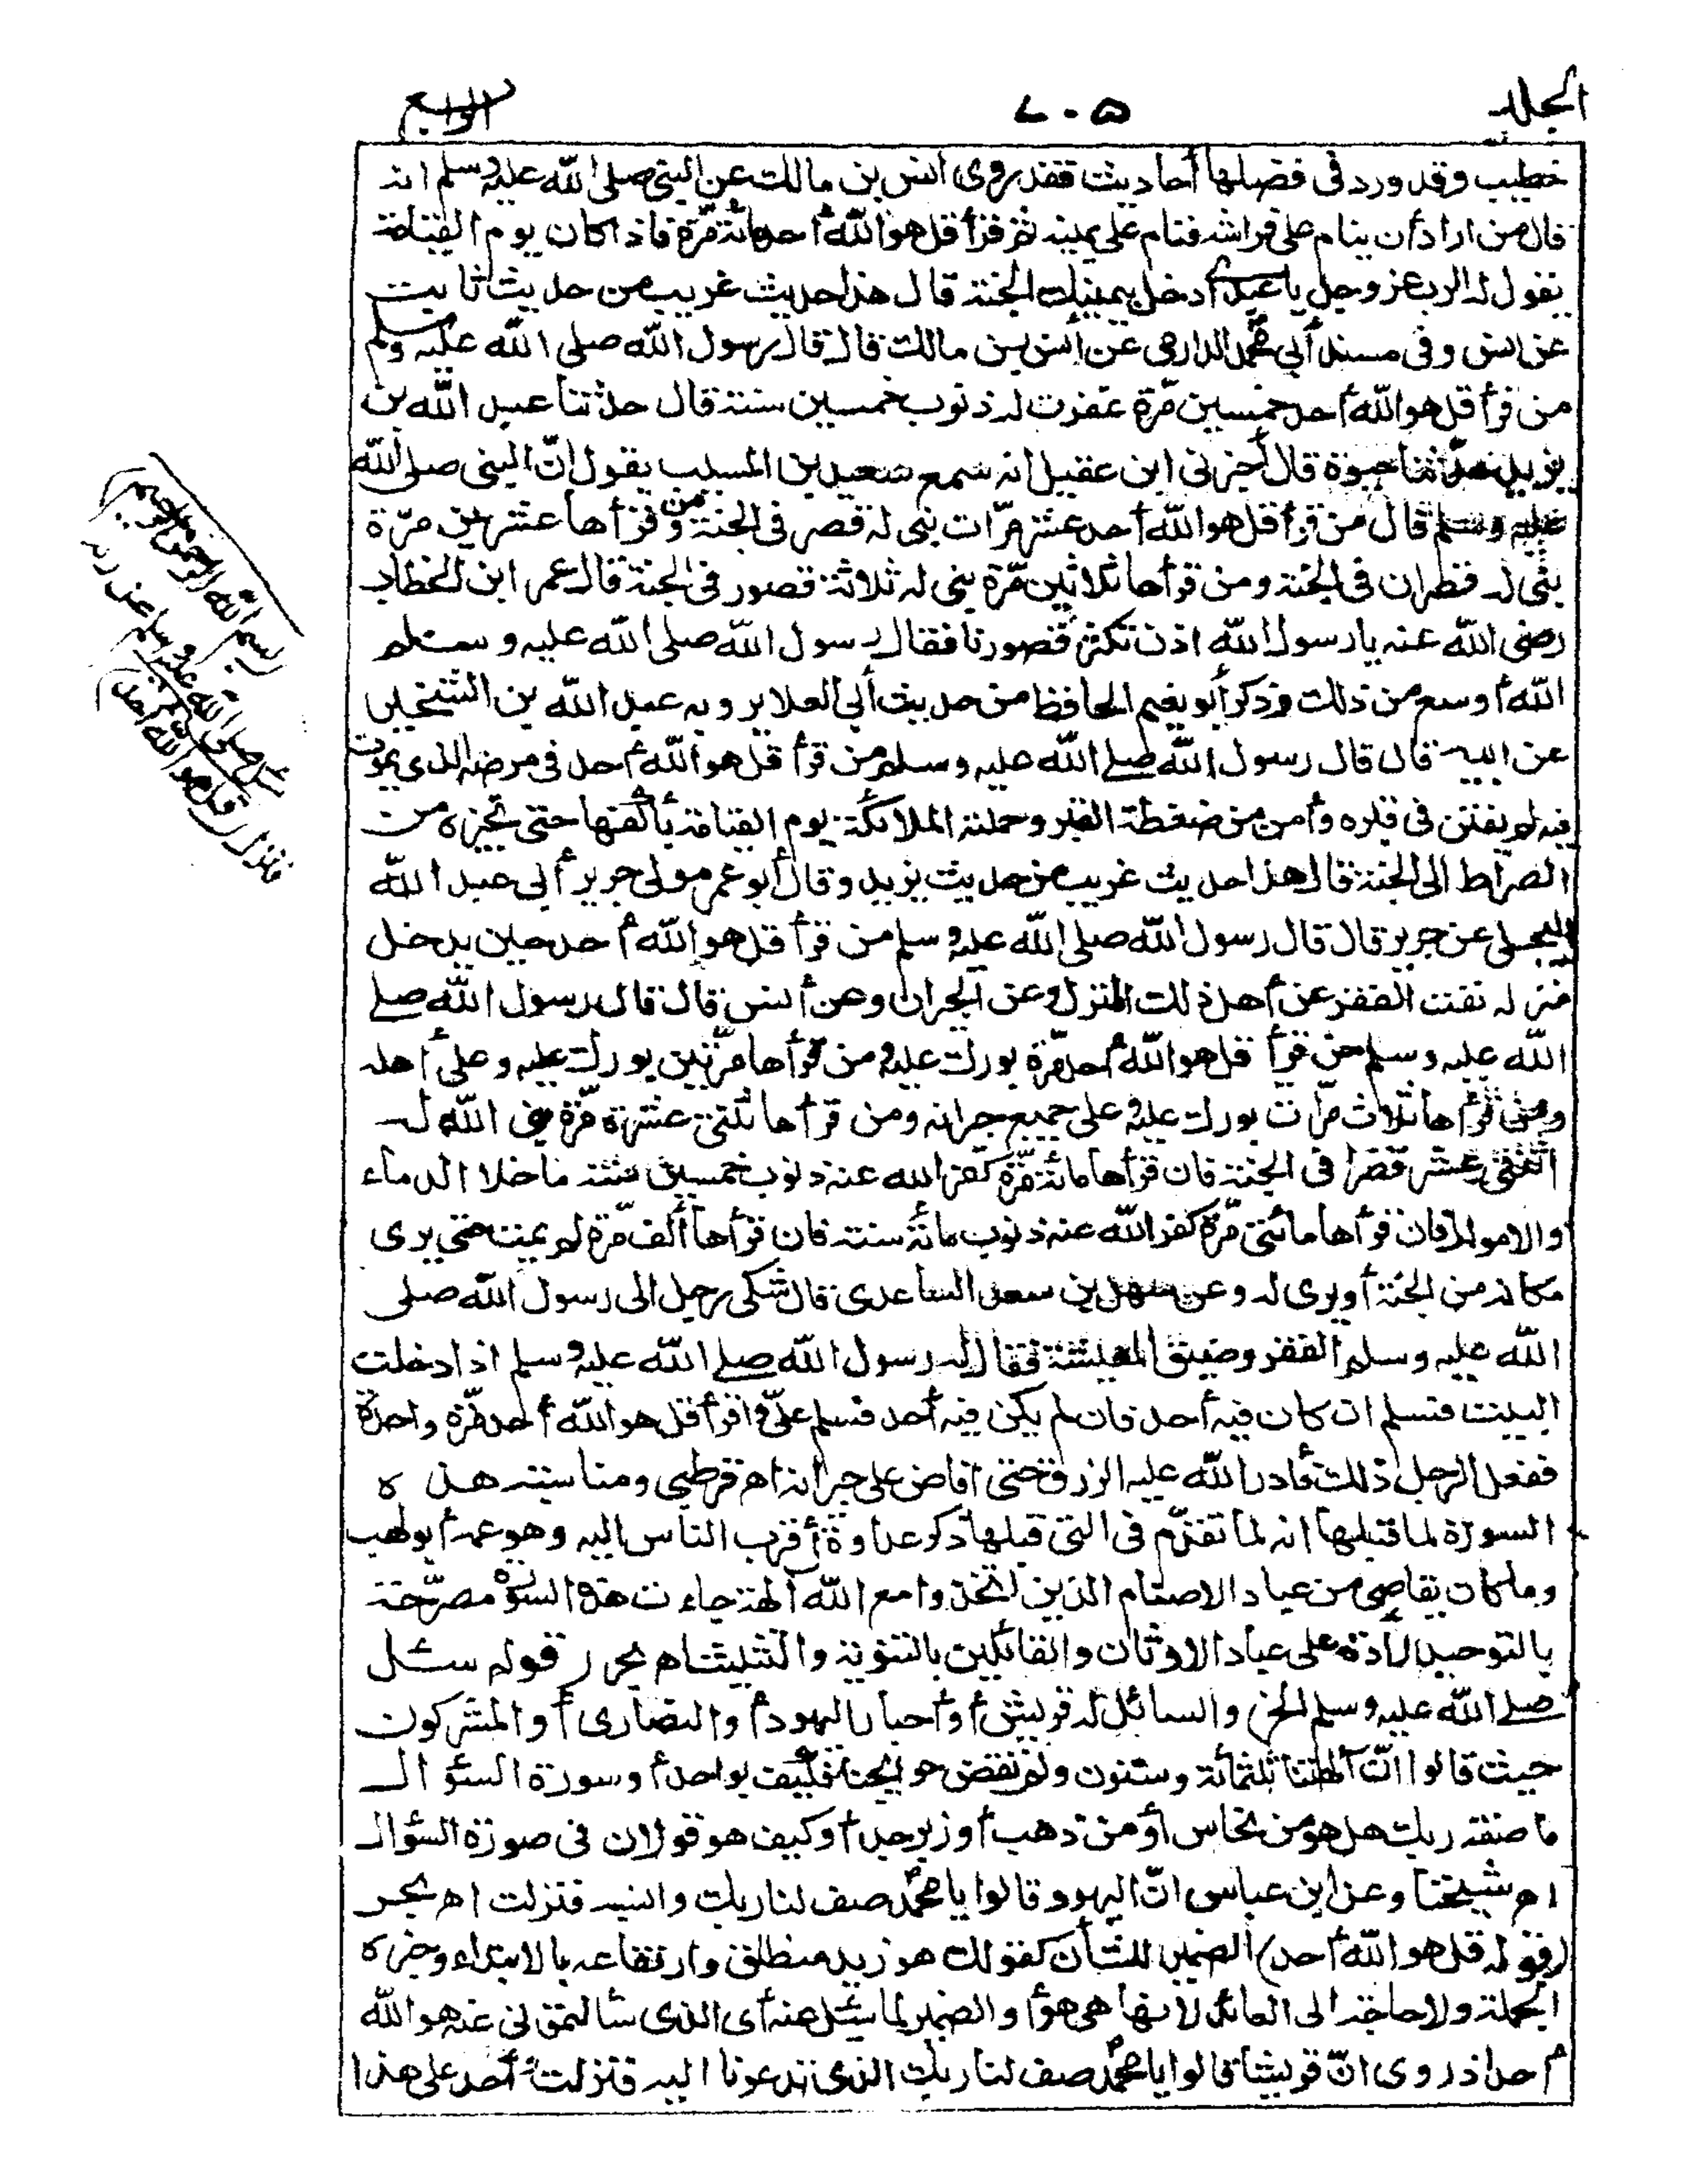 الجلد ٧٠٥ الرابع
خطيب وقد ورد فى فضلها أحاديث فقد روى انس بن مالك عن النبى صلى الله عليه وسلم انه
قال من اراد أن ينام على فراشه فنام على يمينه ثم قرأ قل هو الله أحد مائة مرّة فاذا كان يوم القيامة
يقول له الرب عز وجل يا عبدى أدخل بيمينك الجنة قال هذا حديث غريب من حديث ثابت
عن انس وفى مسند أبى محمد الدارمى عن أنس بن مالك قال قال رسول الله صلى الله عليه وسلم
من قرأ قل هو الله أحد خمسين مرّة غفرت له ذنوب خمسين سنة قال حدثنا عبد الله بن
يزيد حدّثنا حيوة قال أخبرنى ابن عقيل انه سمع سعيد بن المسيب يقول انّ النبى صلى الله
عليه وسلم قال من قرأ قل هو الله أحد عشر مرّات بنى له قصر فى الجنة ومن قرأها عشرين مرّة
بنى له قصران فى الجنة ومن قرأها ثلاثين مرّة بنى له ثلاثة قصور فى الجنة قال عمر ابن الخطاب
رضى الله عنه يا رسول الله اذن تكثر قصورنا فقال رسول الله صلى الله عليه وسلم
الله أوسع من ذلك وذكر أبو نعيم الحافظ من حديث أبى العلا يزويه عبد الله بن الشخير
عن ابيه قال قال رسول الله صلى الله عليه وسلم من قرأ قل هو الله أحد فى مرضه الذى يموت
فيه لم يفتن فى قبره وأمن من ضغطة القبر وحملته الملائكة يوم القيامة بأكفها حتى تجيزه من
الصراط الى الجنة قال هذا حديث غريب من حديث يزيد وقال أبو عمر مولى جرير أبى عبد الله
البجلى عن جرير قال قال رسول الله صلى الله عليه وسلم من قرأ قل هو الله أحد حين يدخل
منزله نفت الفقر عن أهل ذلك المنزل وعن الجران وعن أنس قال قال رسول الله صلى
الله عليه وسلم من قرأ قل هو الله أحد مرّة بورك عليه ومن قرأها مرّتين بورك عليه وعلى أهله
ومن قرأها ثلاث مرّات بورك عليه وعلى جميع جيرانه ومن قرأها ثنتى عشرة مرّة بنى الله له
اثنتى عشر قصرا فى الجنة فان قرأها مائة مرّة كفر الله عنه ذنوب خمسين سنة ما خلا الدماء
والاموال فان قرأها مائتى مرّة كفر الله عنه ذنوب مائة سنة فان قرأها ألف مرّة لم يمت حتى يرى
مكانه من الجنة أويرى له وعن سهل بن سعد الساعدى قال شكى رجل الى رسول الله صلى
الله عليه وسلم الفقر وضيق المعيشة فقال له رسول الله صلى الله عليه وسلم اذا دخلت
البيت فسلم ان كان فيه أحد فان لم يكن فيه أحد فسلم علىّ واقرأ قل هو الله أحد مرّة واحدة
ففعل الرجل ذلك فأدر الله عليه الرزق حتى افاض على جيرانه اهـ قرطبى ومناسبته هذه
السورة لما قبلها انه لما تقدّم فى التى قبلها ذكر عداوة أقرب الناس اليه وهو عمه أبو لهب
وما كان يقاصى من عباد الاصنام الذين اتخذوا مع الله آلهة جاءت هذه السورة مصرّحة
بالتوحيد رادّة على عباد الاوثان والقائلين بالثنوية والتثليث اهـ بحر ر قوله سئل
صلى الله عليه وسلم الخ) والسائل له قريش أو أحبار اليهود أو النصارى أو المشركون
حيث قالوا انّ آلهتنا ثلثمائة وستون ولم نقض حوايجنا فكيف بواحد أو سورة السؤال
ما صنفته ربك هل هو من نحاس أو من ذهب أو زبرجد أو كيف هو قولان فى صورة السؤال
اهـ شيخنا وعن ابن عباس انّ اليهود قالوا يا محمّد صف لنا ربك وانسبه فنزلت اهـ بحر
(قوله قل هو الله أحد) الضمير للشأن كقولك هو زيد منطلق وارتفاعه بالابتداء وخبره
الجملة ولا حاجة الى العائد لانها هى هو أو الضمير لما سئل عنه أى الذى سألتمونى عنه هو الله
أحد اذ روى انّ قريشا قالوا يا محمّد صف لنا ربك الذى تدعونا اليه فنزلت أحد على هذا
بسم الله الرحمن الرحيم
صلى الله عليه وسلم عن ربه
فنزل (قل هو الله احد)